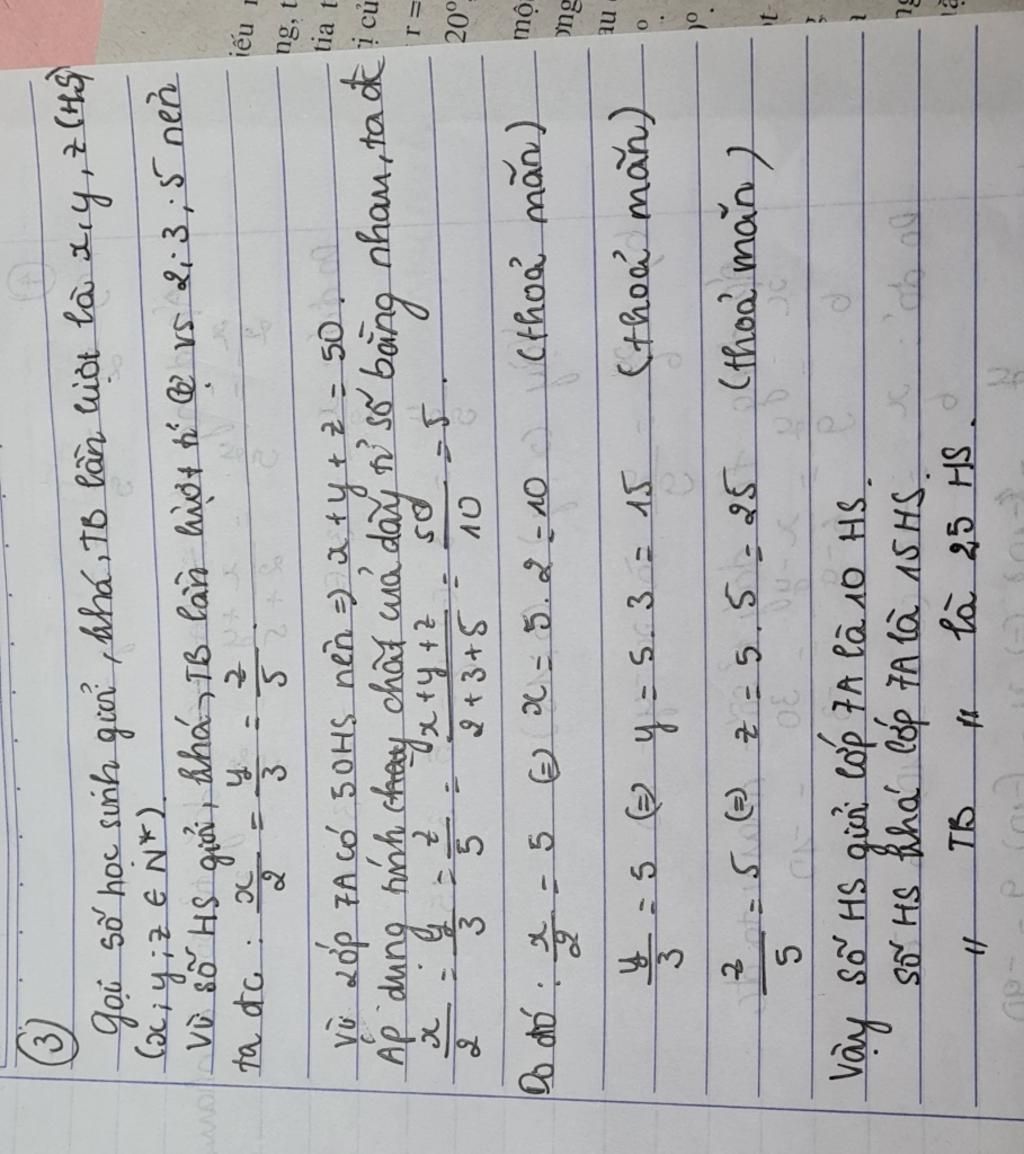 ③
Gọi số học sinh giỏi, khá, TB lần lượt là x, y, z (HS)
(x; y; z ∈ N*)
Vì số HS giỏi, khá, TB lần lượt tỉ lệ vs 2; 3; 5 nên
ta đc: x/2 = y/3 = z/5
Vì lớp 7A có 50HS nên => x + y + z = 50.
Áp dụng tính chất của dãy tỉ số bằng nhau, ta đc
x/2 = y/3 = z/5 = x+y+z/2+3+5 = 50/10 = 5.
Do đó: x/2 = 5 (=) x = 5.2 = 10 (thoả mãn)
y/3 = 5 (=) y = 5.3 = 15 (thoả mãn)
z/5 = 5 (=) z = 5.5 = 25 (thoả mãn)
Vậy số HS giỏi lớp 7A là 10 HS.
số HS khá lớp 7A là 15HS.
" TB " là 25 HS.
iếu
ng, t
tia t
ị củ
r =
20°
mộ
ong
au